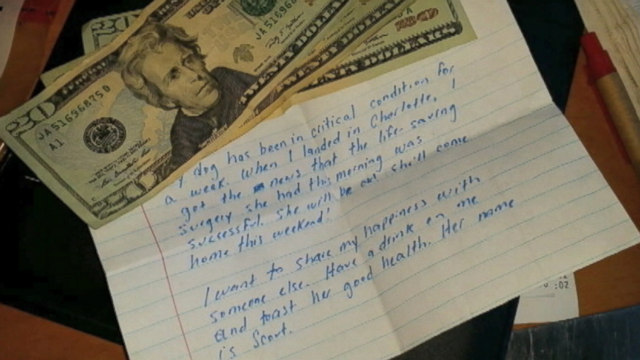 20
JA51696875D
A1
JA516
20
My dog has been in critical condition for
a week. When I landed in Charlotte, I
got the news that the life-saving
surgery she had this morning was
successful. She will be and she'll come
home this weekend!
I want to share my happiness with
someone else. Have a drink on me
and toast her good health. Her name
is Scout.
:02